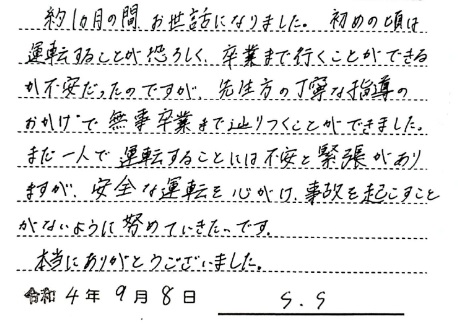 約1ヵ月の間 お世話になりました。 初めの頃は
運転することが恐ろしく、卒業まで行くことができる
か不安だったのですが、先生方の丁寧な指導の
おかげで 無事卒業まで辿りつくことができました。
まだ一人で 運転することには不安と緊張があり
ますが、安全な運転を心がけ、事故を起こすこと
がないように努めていきたいです。
本当にありがとうございました。
令和 4年 9月 8日 S.S